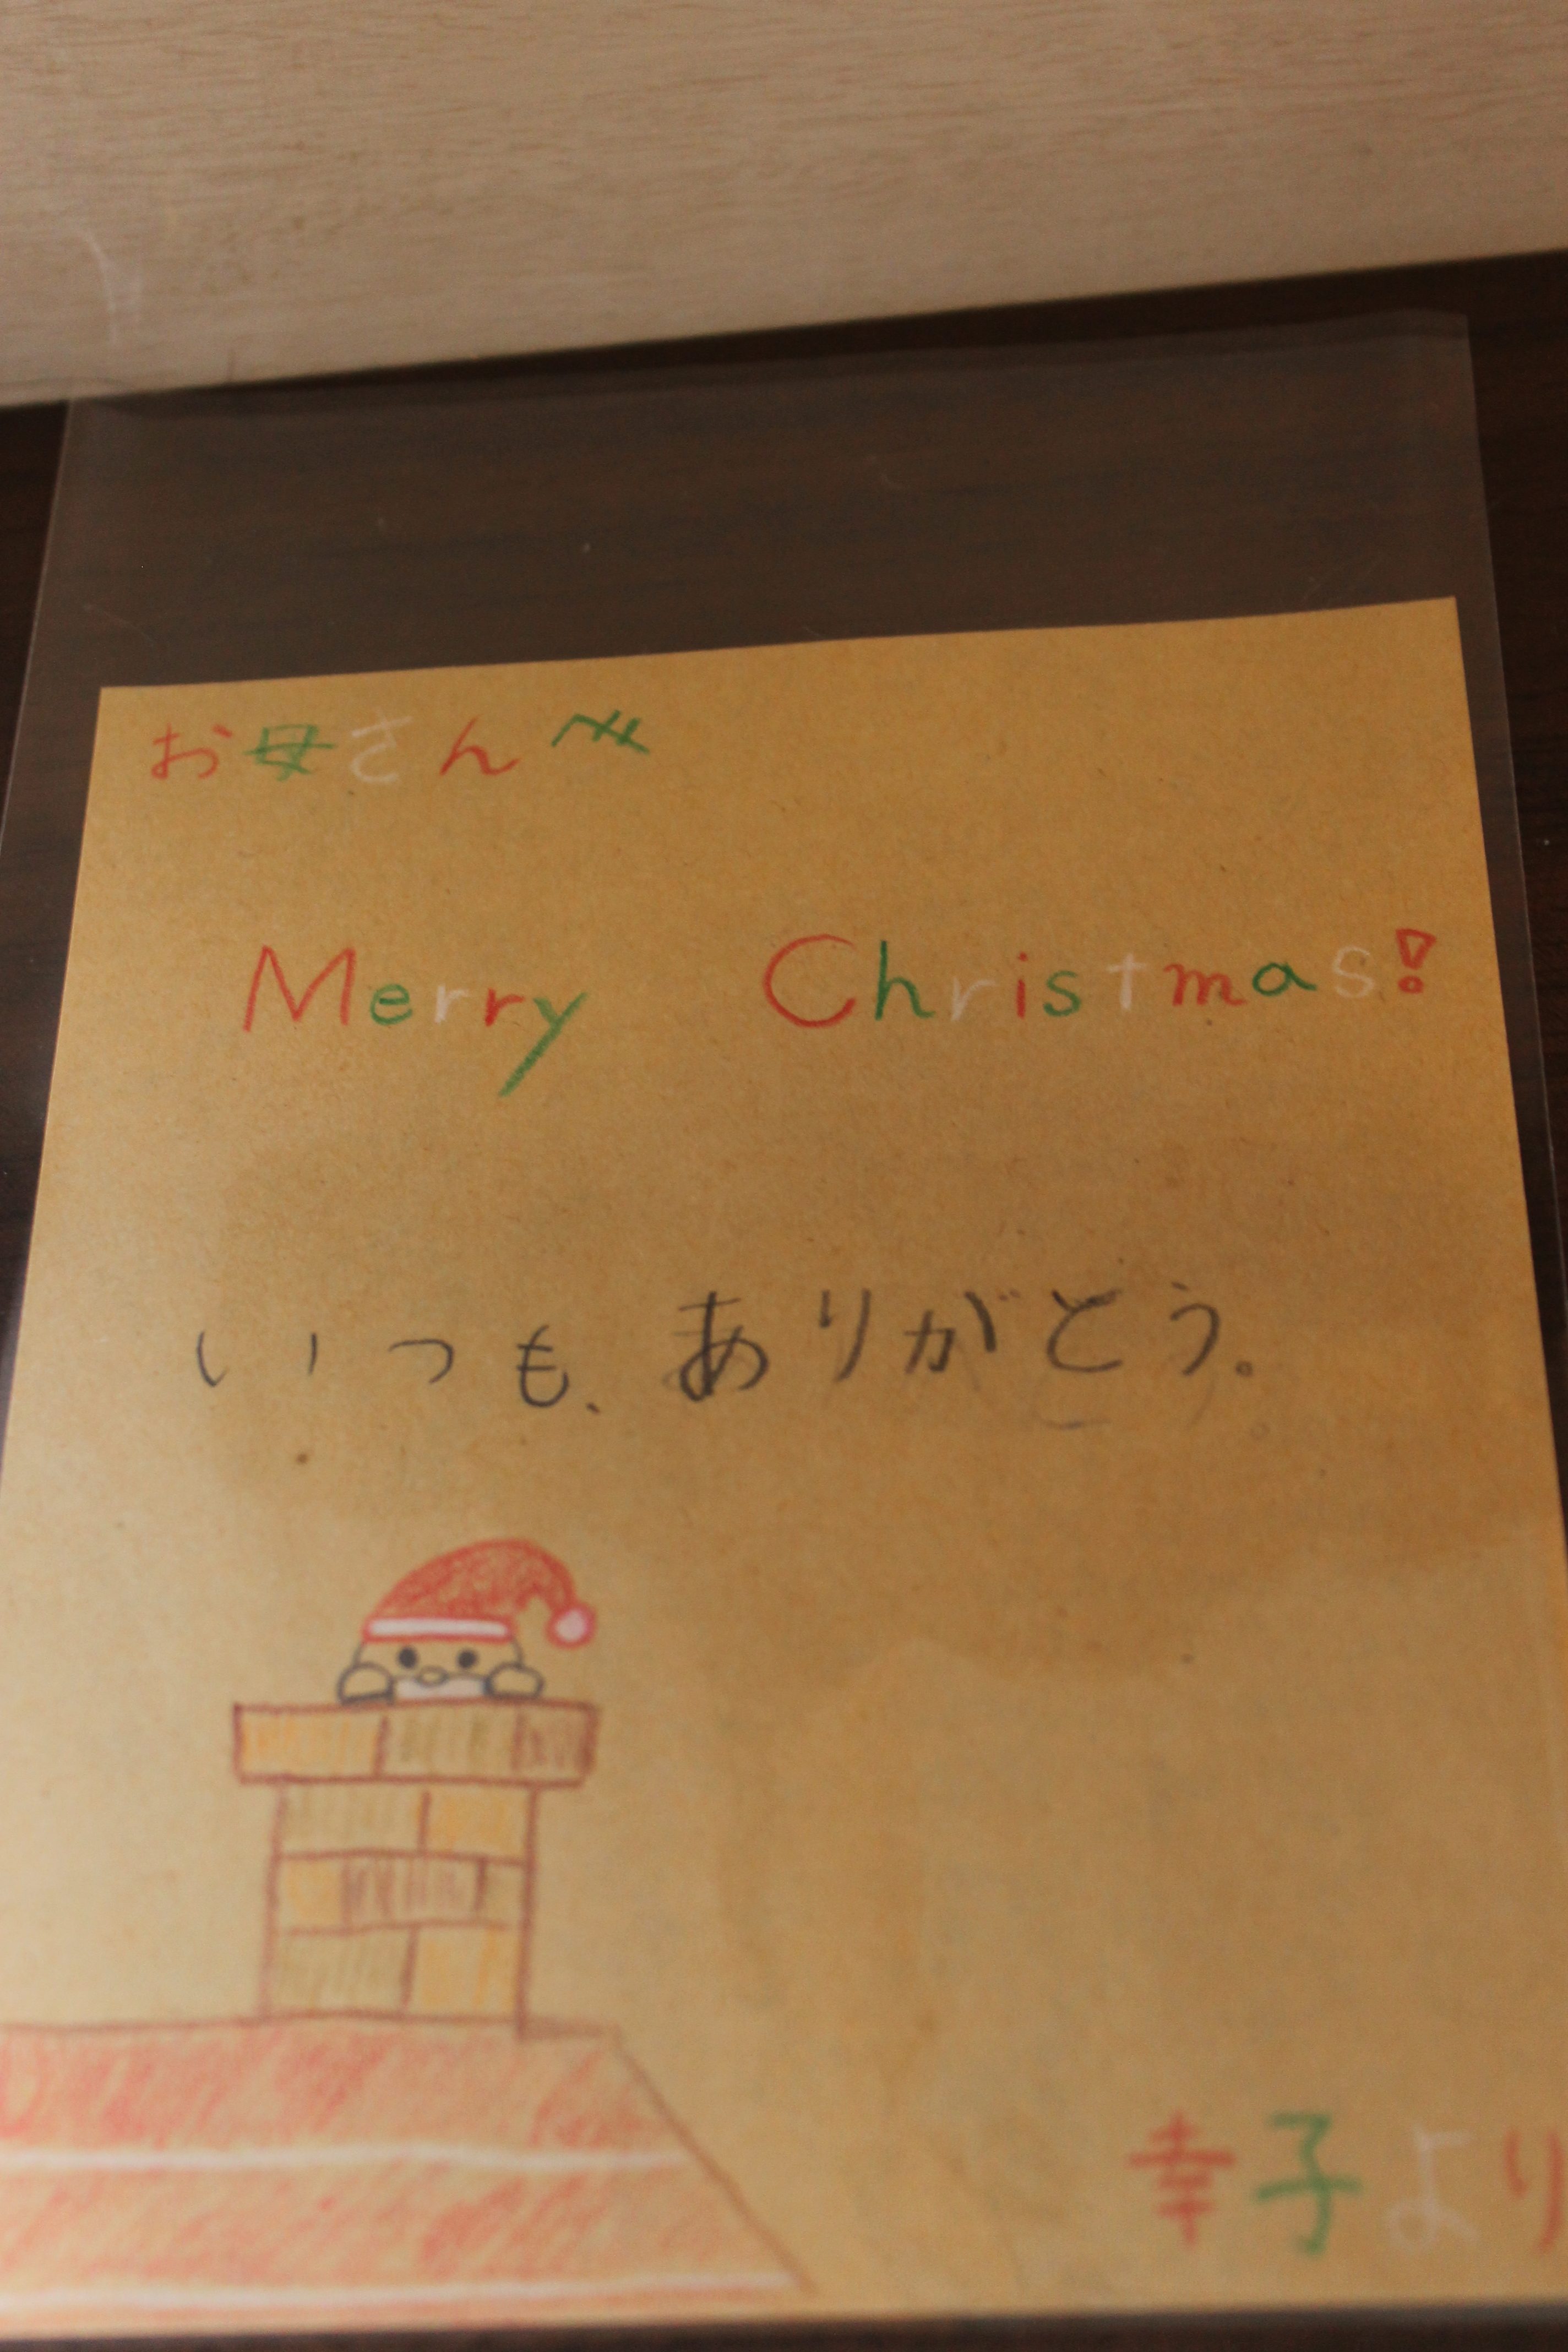 お母さんへ
Merry Christmas!
いつも、ありがとう。
幸子より